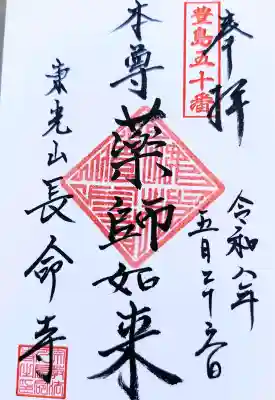 奉拝
豊島五十番
令和八年
五月
本尊 藥師如来
東光山 長命寺